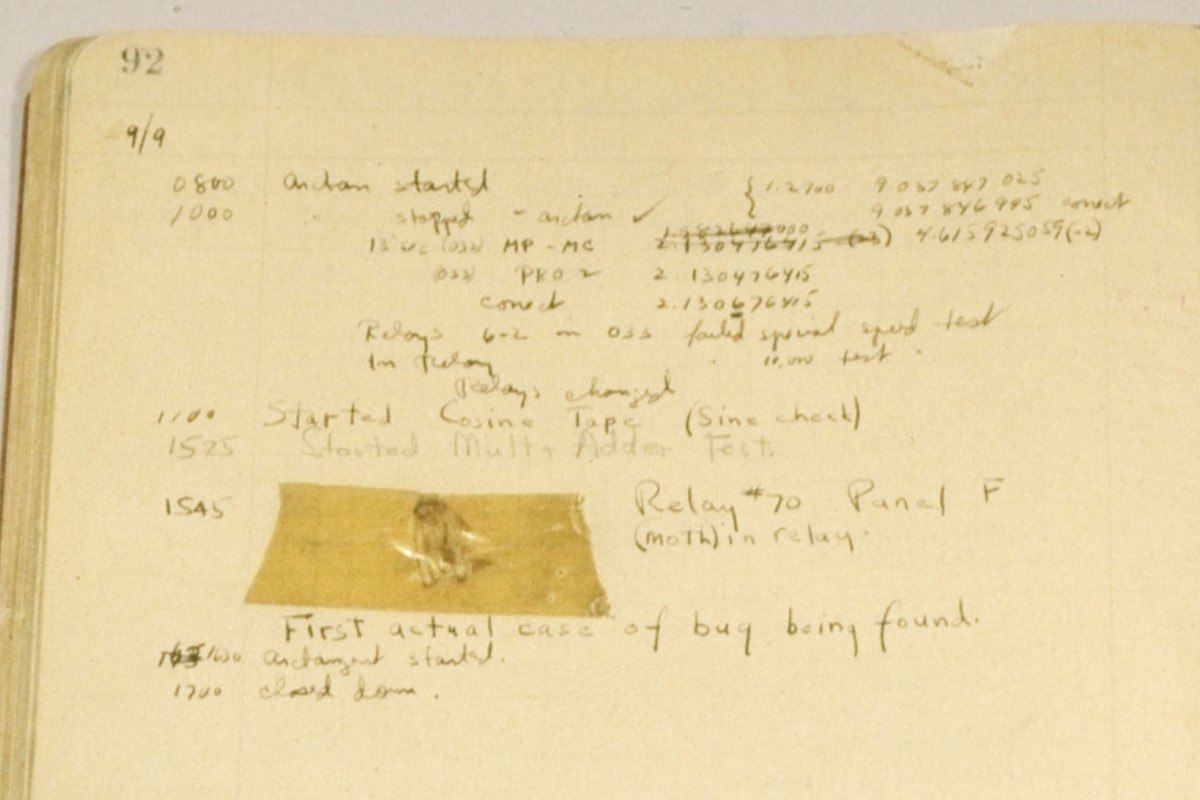 92
9/9
0800 Antan started { 1.2700 9.037 847 025
1000 " stopped - antan ✓ 9.037 846 995 conect
13"uc (032) MP - MC 2.130476415 (-3) 4.615925059(-2)
(033) PRO 2 2.130476415
conect 2.130676415
Relays 6-2 in 033 failed special speed test
In Relay " 10,000 test .
Relays changed
1100 Started Cosine Tape (Sine check)
1525 Started Mult + Adder Test.
1545 Relay #70 Panel F
(moth) in relay.
First actual case of bug being found.
1630 antangent started.
1700 closed down .